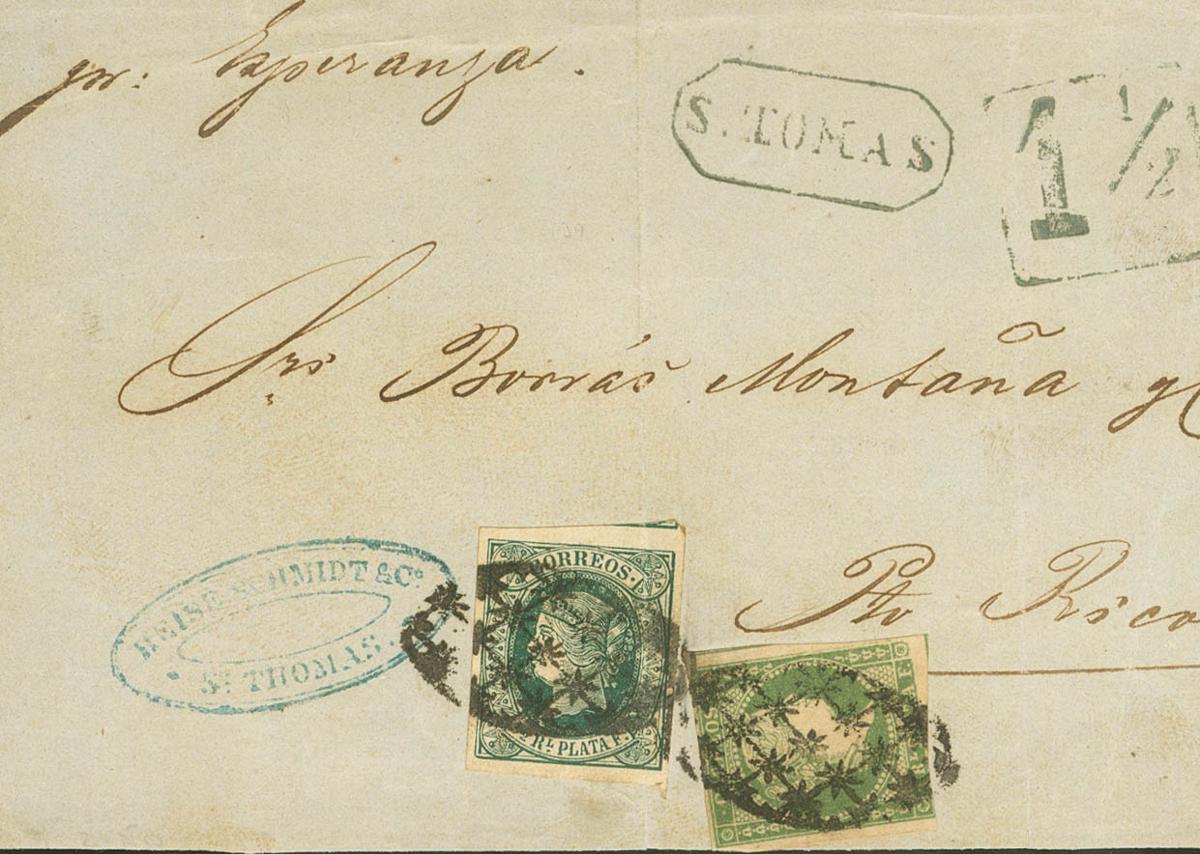 pr: Esperanza.
S. TOMAS
1 1/2
Srs Borrás Montaña y C
HEISE SCHMIDT & Co.
ST THOMAS.
Pto Rico
CORREOS.
RL PLATA F.